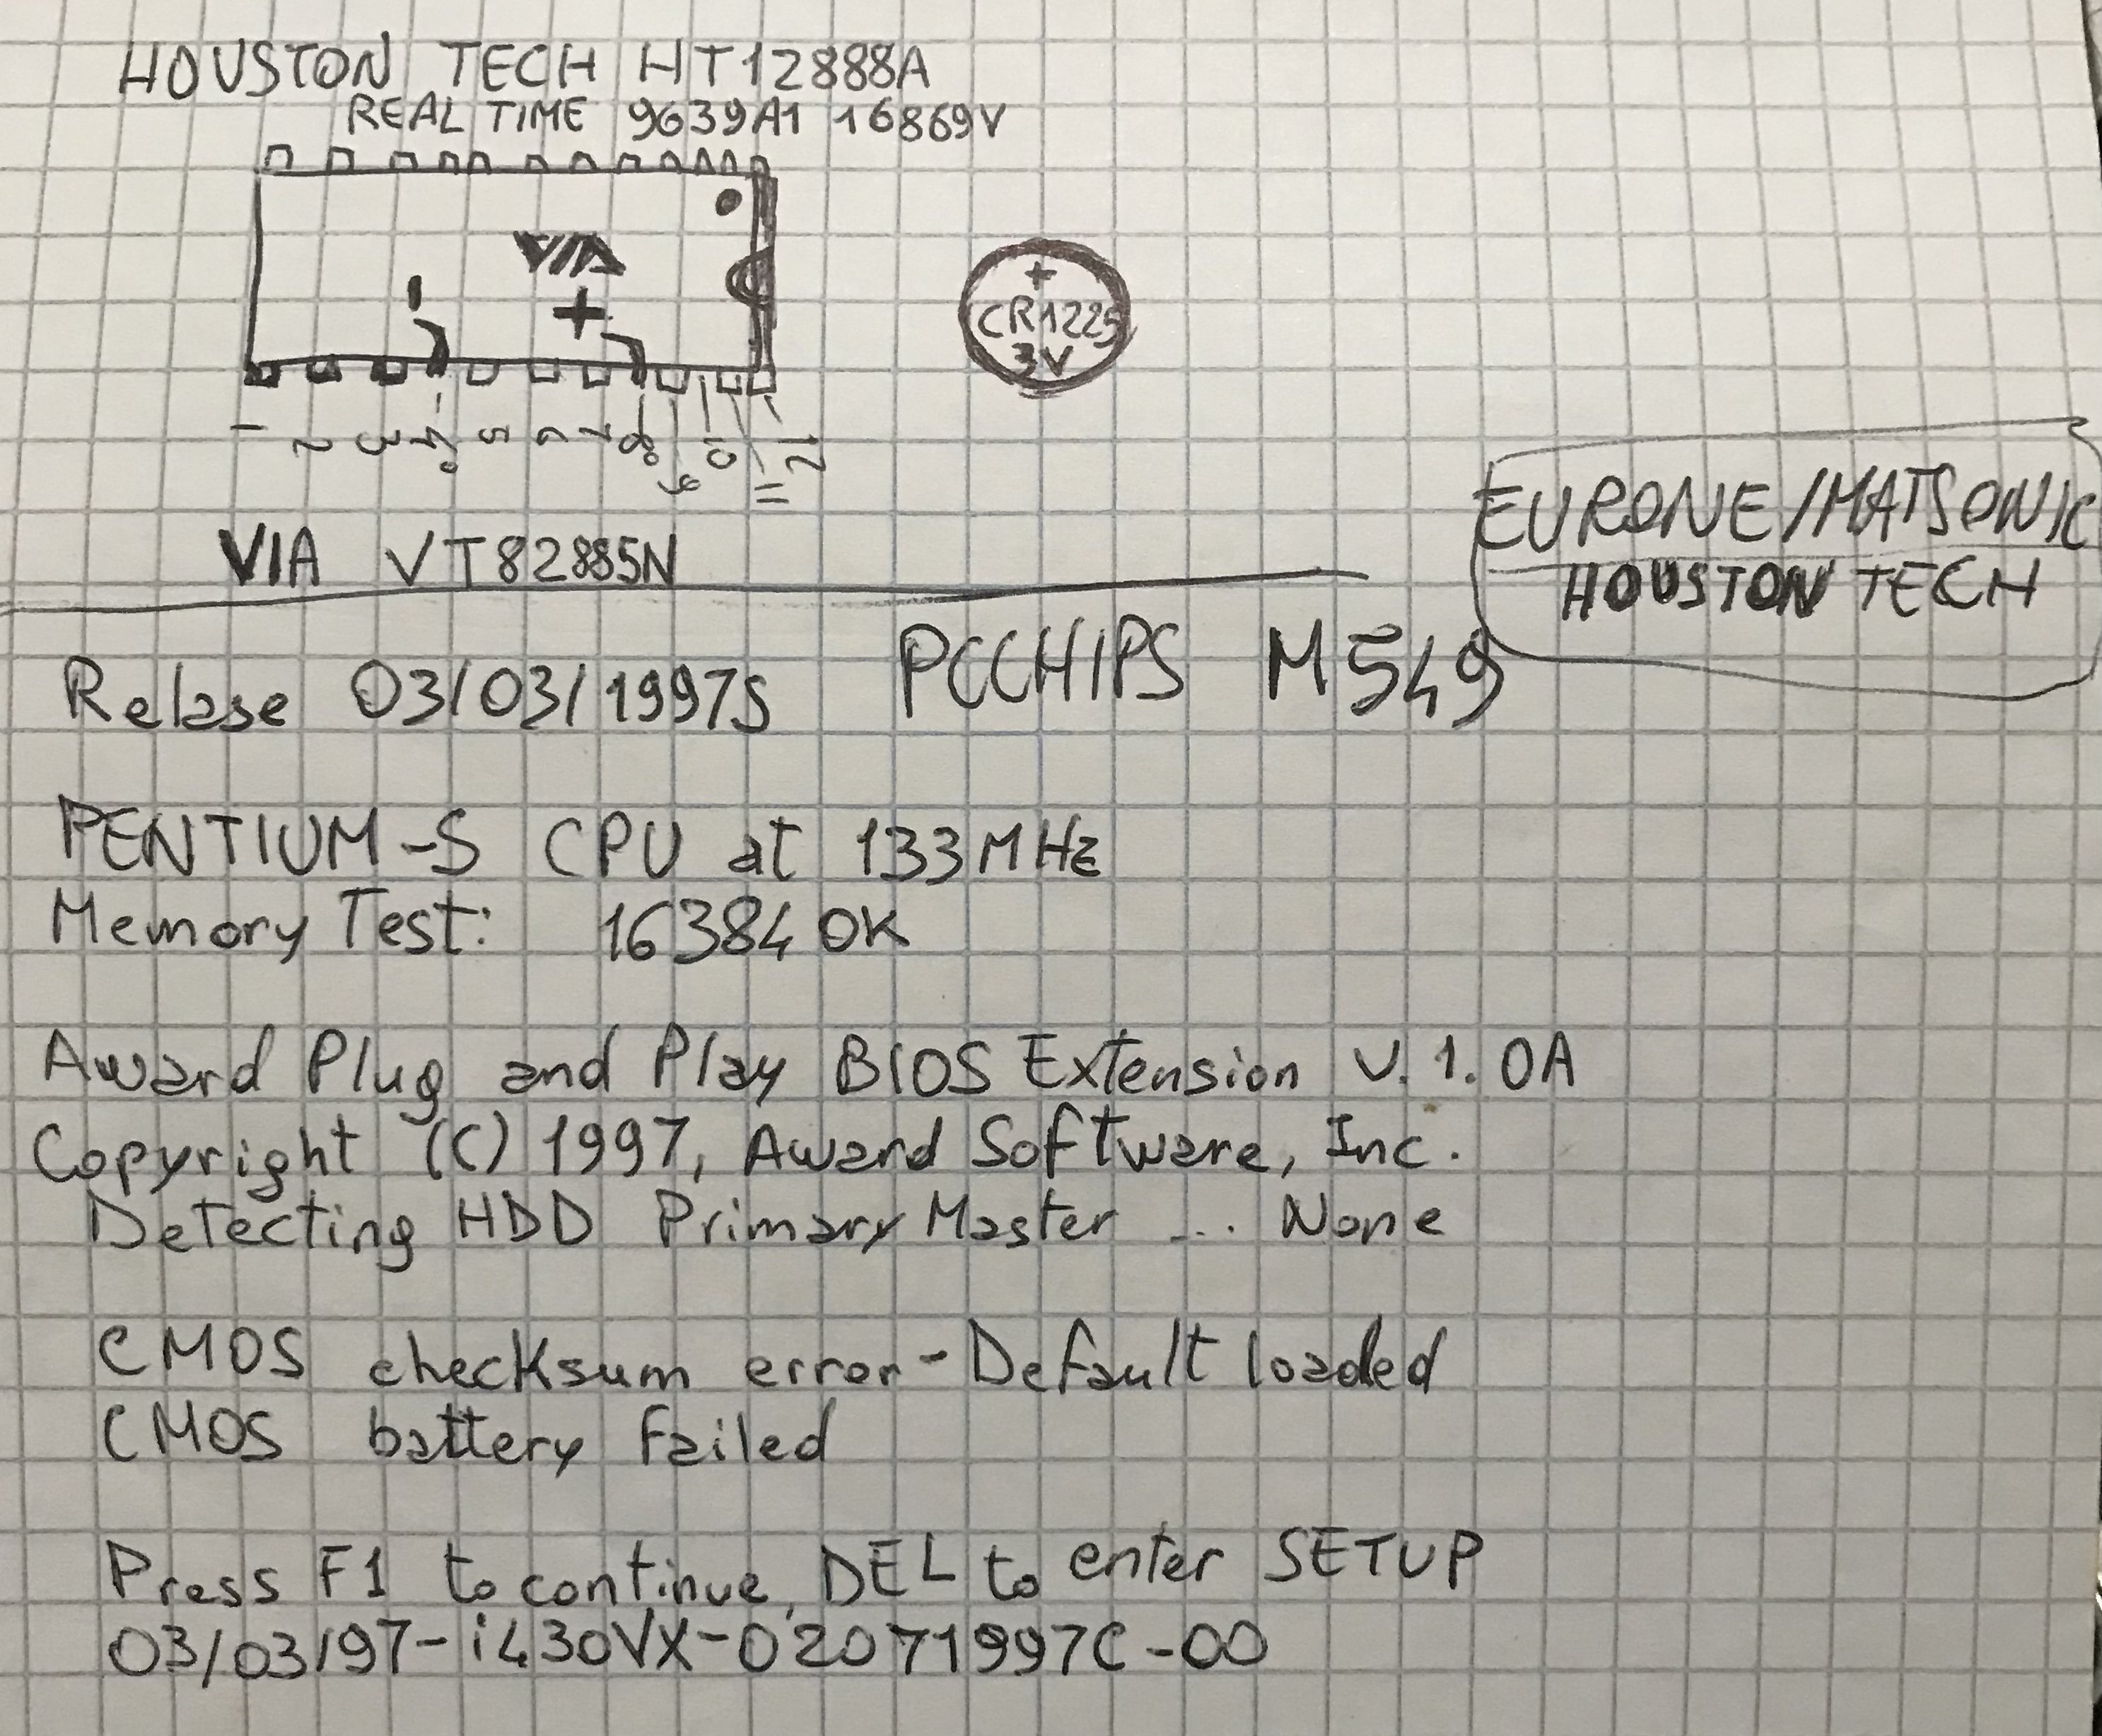 HOUSTON TECH HT12888A
REAL TIME 9639A1 16869V
VIA
- +
+
CR1225
3V
1 2 3 4 5 6 7 8 9 10 11 12
VIA VT82885N
EURONE/MATSONIC
HOUSTON TECH
PCCHIPS M549
Relase 03/03/1997S
PENTIUM-S CPU at 133MHz
Memory Test: 16384 OK
Award Plug and Play BIOS Extension v.1.0A
Copyright (C) 1997, Award Software, Inc.
Detecting HDD Primary Master ... None
CMOS checksum error-Default loaded
CMOS battery failed
Press F1 to continue, DEL to enter SETUP
03/03/97-i430VX-02071997C-00